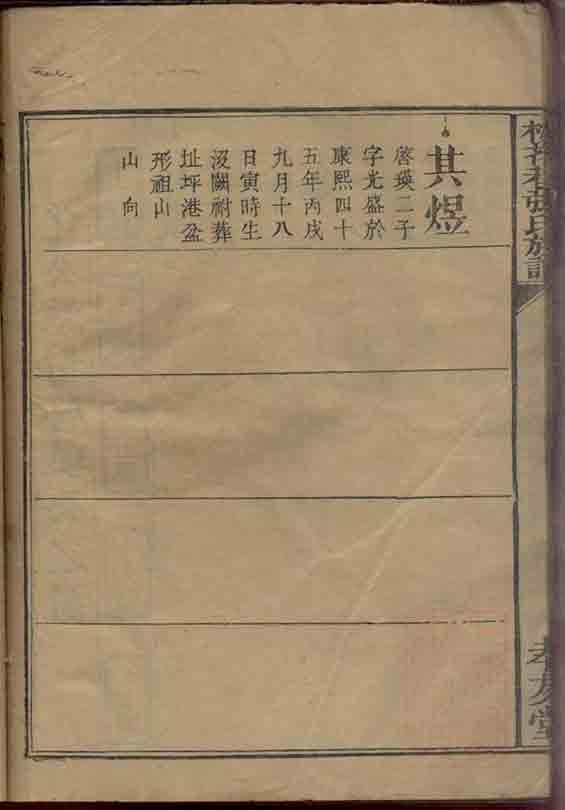 其煜
啓瑛二子
字光盛於
康熙四十
五年丙戌
九月十八
日寅時生
沒闕祔葬
址坪港盆
形祖山
山向
張氏族譜
孝友堂